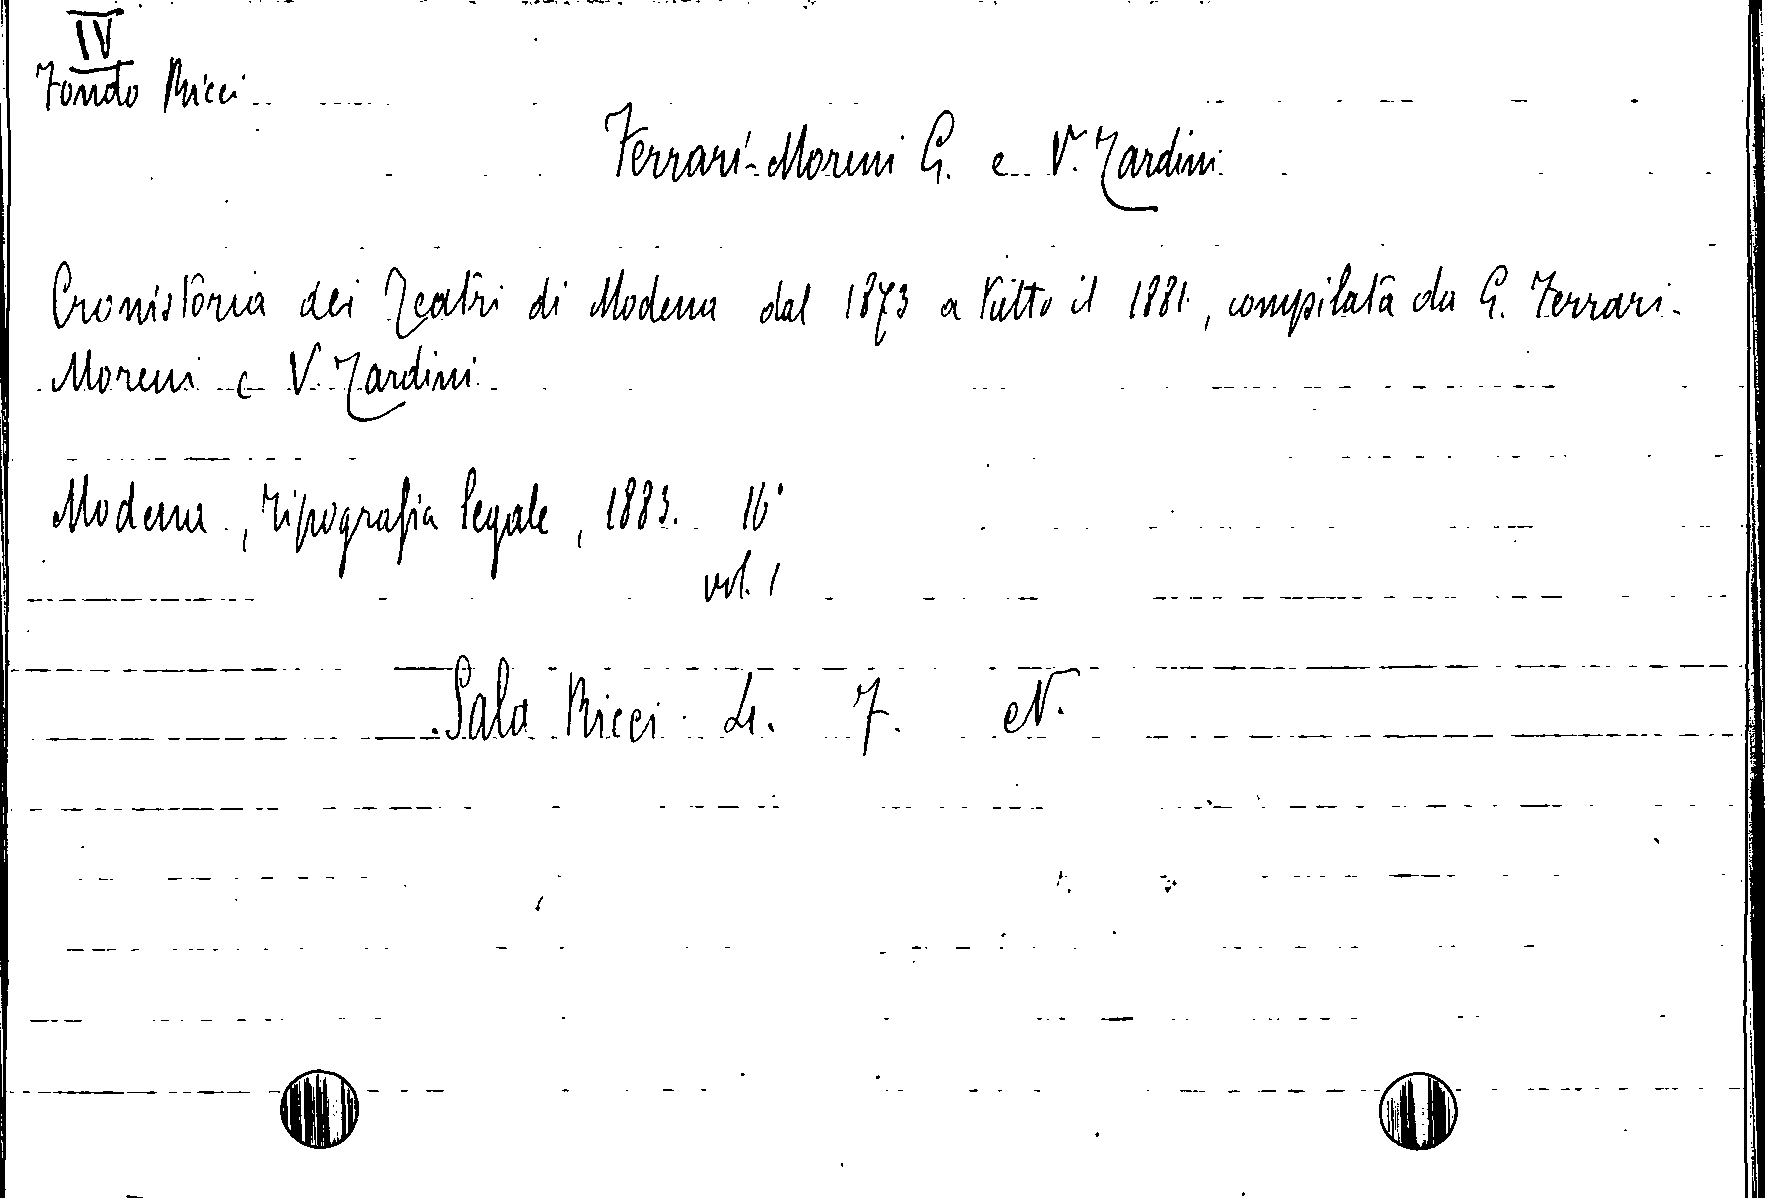 IV
Fondo Ricci
Ferrari-Moreni G. e V. Tardini
Cronistoria dei Teatri di Modena dal 1873 a tutto il 1881, compilata da G. Ferrari-
Moreni e V. Tardini
Modena, Tipografia legale, 1883. 16°
vol. 1
Sala Ricci L. F. N.